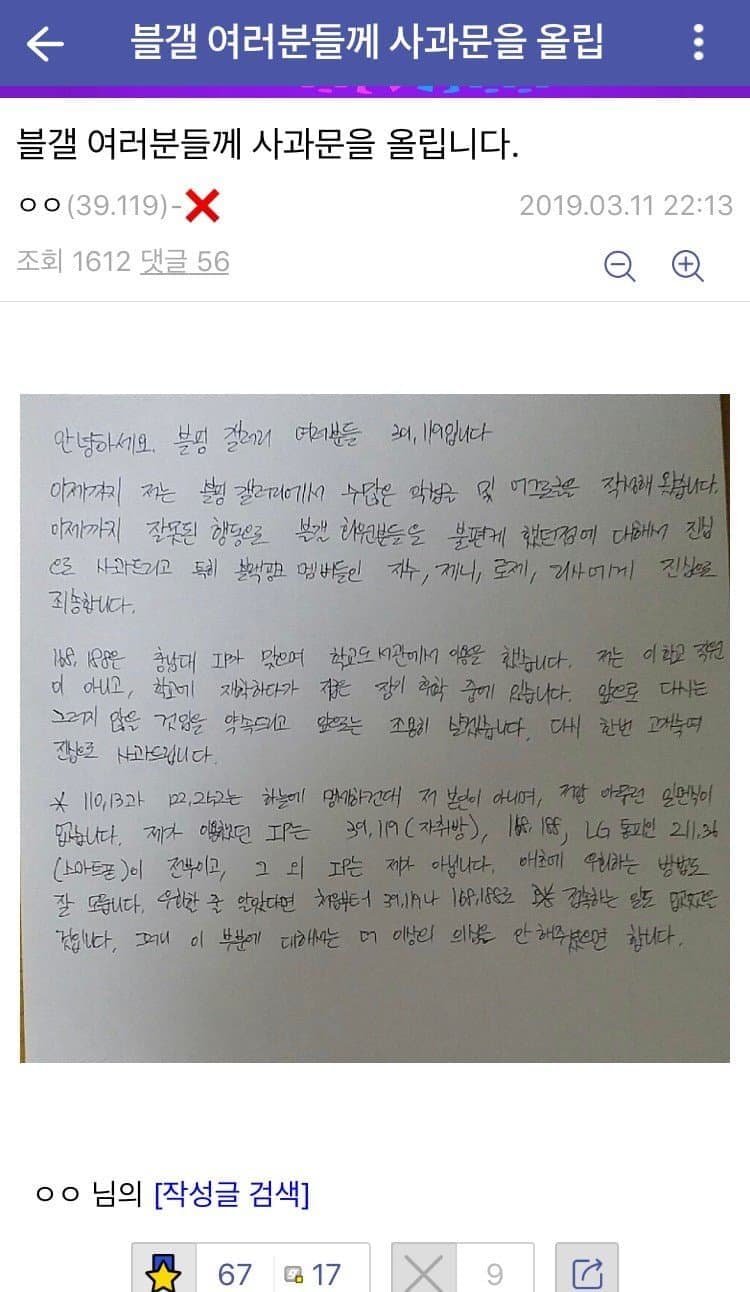 블갤 여러분들께 사과문을 올립
블갤 여러분들께 사과문을 올립니다.
ㅇㅇ(39.119)-❌ 2019.03.11 22:13
조회 1612 댓글 56
안녕하세요. 블핑 갤러리 여러분들 39,119입니다
이제까지 저는 블핑 갤러리에서 수많은 악성글 및 어그로글을 작성해 왔습니다.
이제까지 잘못된 행동으로 블갤 회원분들을 불편케 했던점에 대해서 진심
으로 사과드리고 특히 블랙핑크 멤버들인 지수, 제니, 로제, 리사에게 진심으로
죄송합니다.
168, 188은 충남대 IP가 맞으며 학교도서관에서 이용을 했습니다. 저는 이 학교 직원
이 아니고, 학교에 재학하다가 지금은 장기 휴학 중에 있습니다. 앞으로 다시는
그러지 않을 것임을 약속드리고 앞으로는 조용히 살겠습니다. 다시 한번 고개숙여
진심으로 사과드립니다.
* 110,13과 122,252는 하늘에 맹세하건대 저 본인이 아니며, 저랑 아무런 일면식이
없습니다. 제가 이용했던 IP는 39,119(자취방), 168,188, LG 통피인 211.36
(스마트폰)이 전부이고, 그 외 IP는 제가 아닙니다. 애초에 우회하는 방법도
잘 모릅니다. 우회할 줄 알았다면 처음부터 39,119나 168,188로 접속하는 일도 없었을
것입니다. 그러니 이 부분에 대해서는 더 이상의 의심을 안 해주셨으면 합니다.
ㅇㅇ 님의 [작성글 검색]
67 17 9